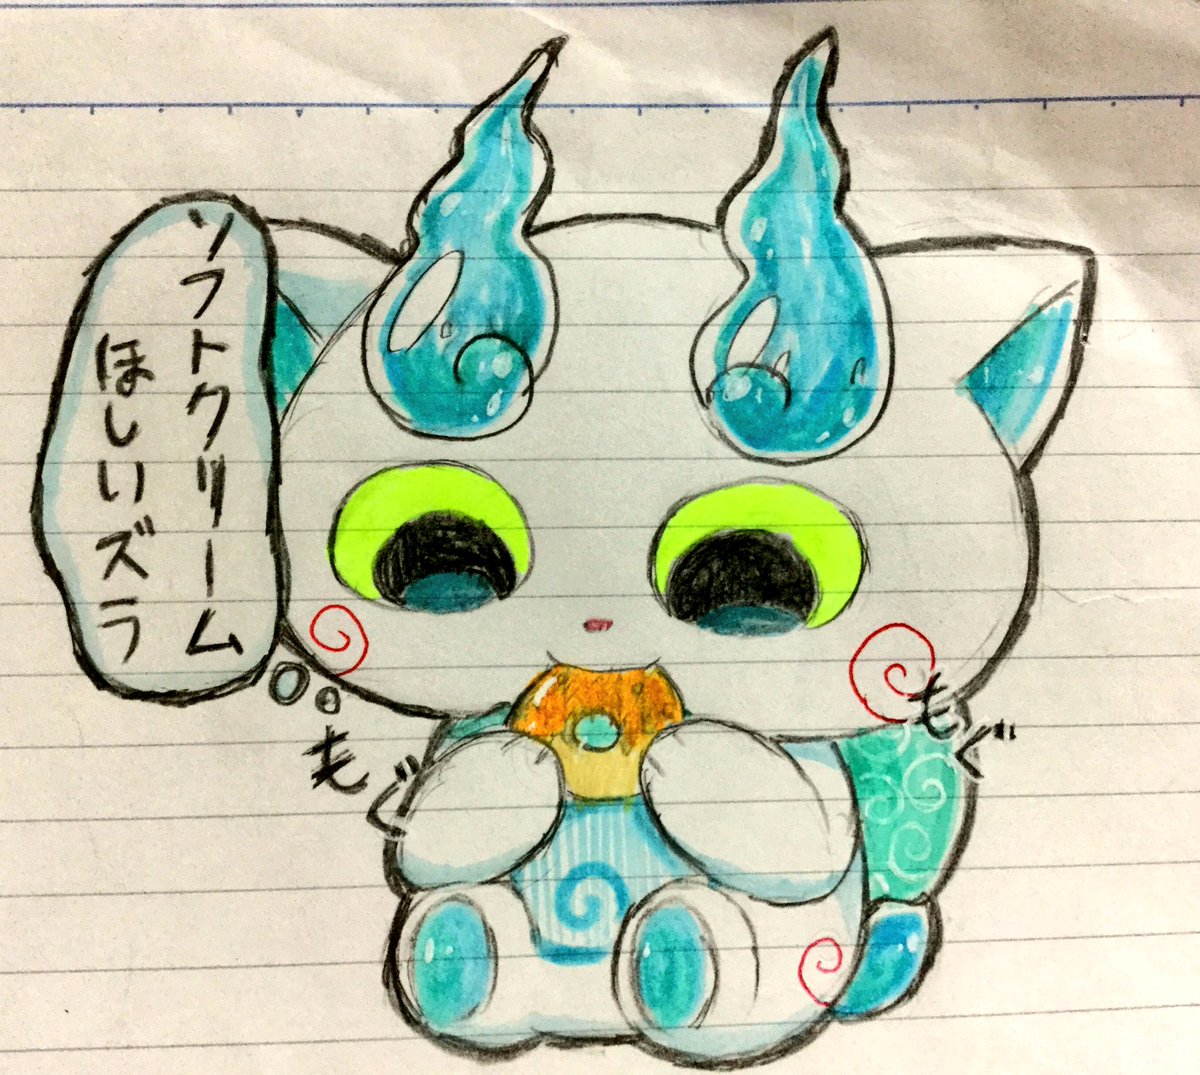 ソフトクリーム
ほしいズラ
もぐ
もぐ